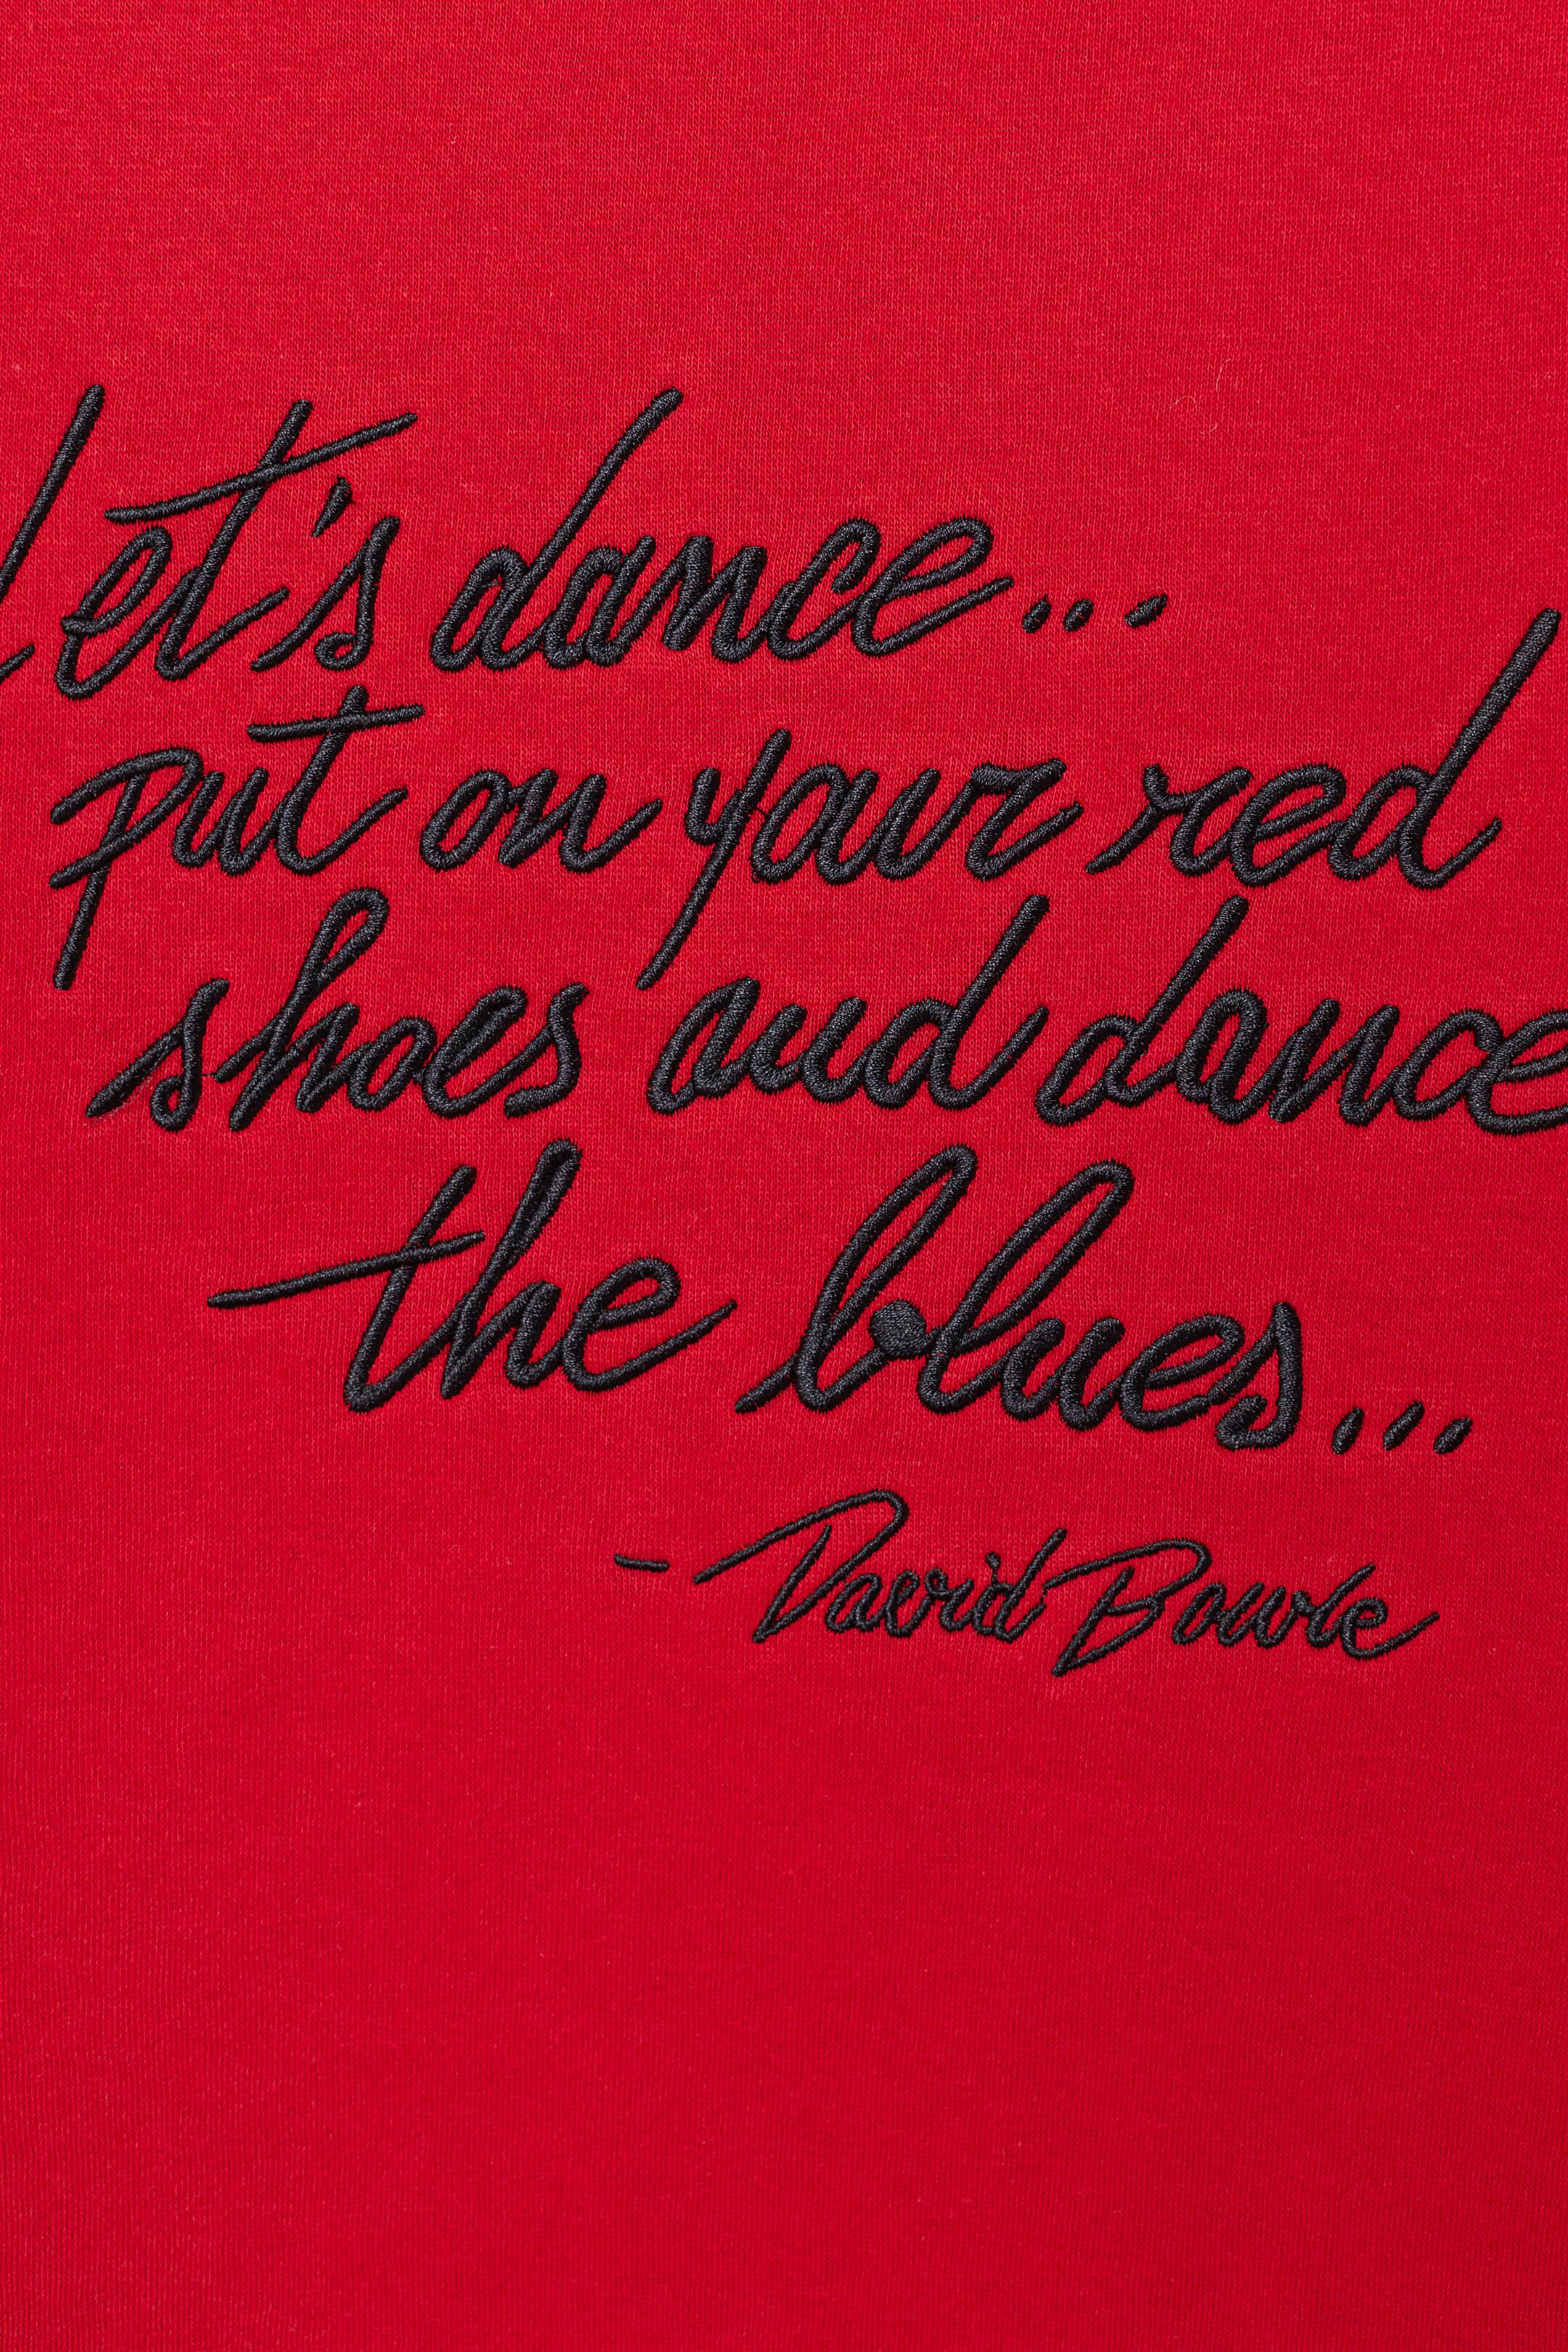 Let's dance...
put on your red
shoes and dance
the blues...
- David Bowie